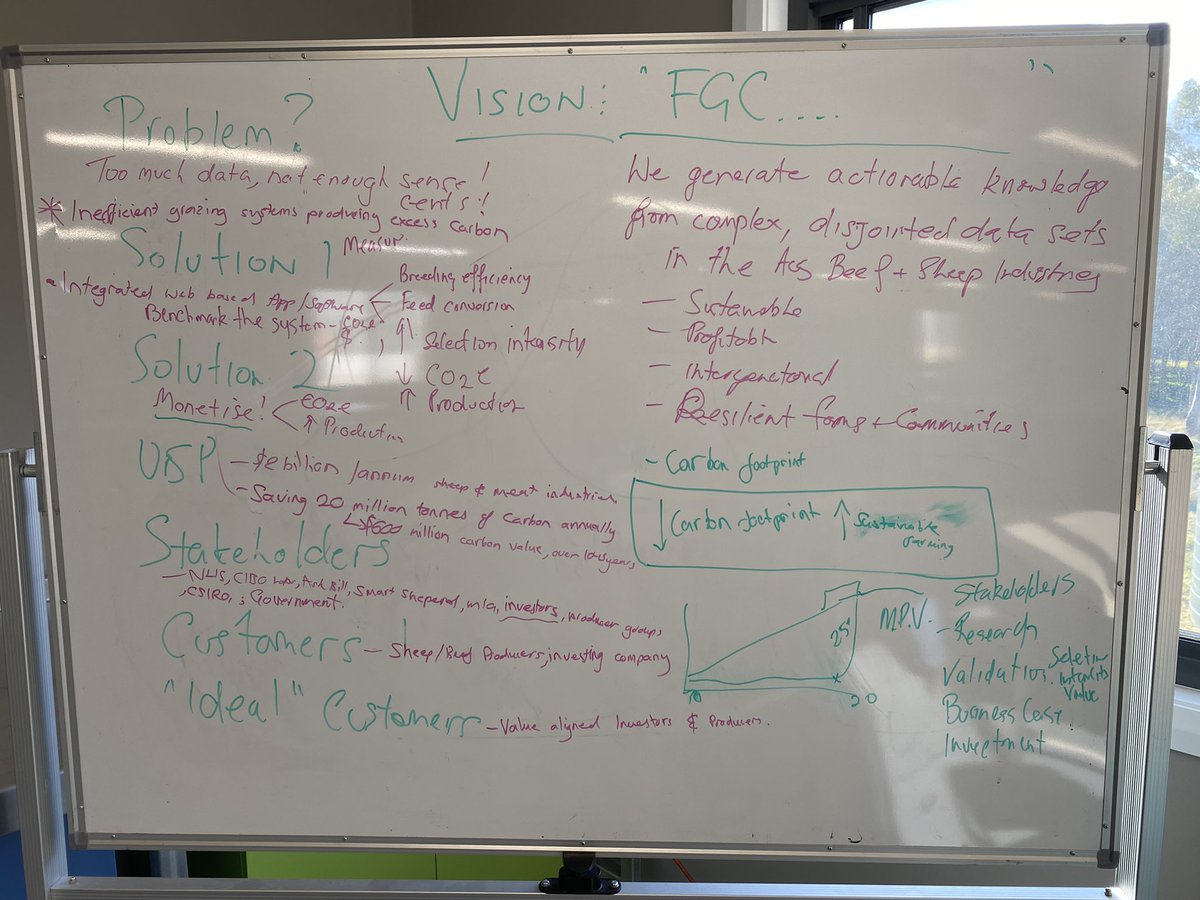 Vision: "FGC.... "
Problem?
Too much data, not enough sense!
cents!
* Inefficient grazing systems producing excess carbon
Solution 1
Measur.
- Integrated web based App/Software
Breeding efficiency
Feed conversion
Benchmark the system - CO2e
$
, ↑ Selection intensity
↓ CO2e
↑ Production
Solution 2
Monetise!
CO2e
↑ Production
- $2 billion /annum sheep & meat industries
- Saving 20 million tonnes of carbon annually
↳ $600 million carbon value, over
Stakeholders
investors, producer groups
, CSIRO, ; Government.
Customers - Sheep/Beef Producers, investing company
"Ideal" Customers - Value aligned Investors & Producers.
We generate actionable knowledge
from complex, disjointed data sets
in the Aus Beef + Sheep Industries
- Sustanable
- Profitable
- Intergenational
- Resilient farms + Communities
- Carbon footprint
↓ Carbon footprint ↑ Sustainable
farming
M.P.V.
Stakeholders
- Research
Validation.
Value
Business Case.
Investment